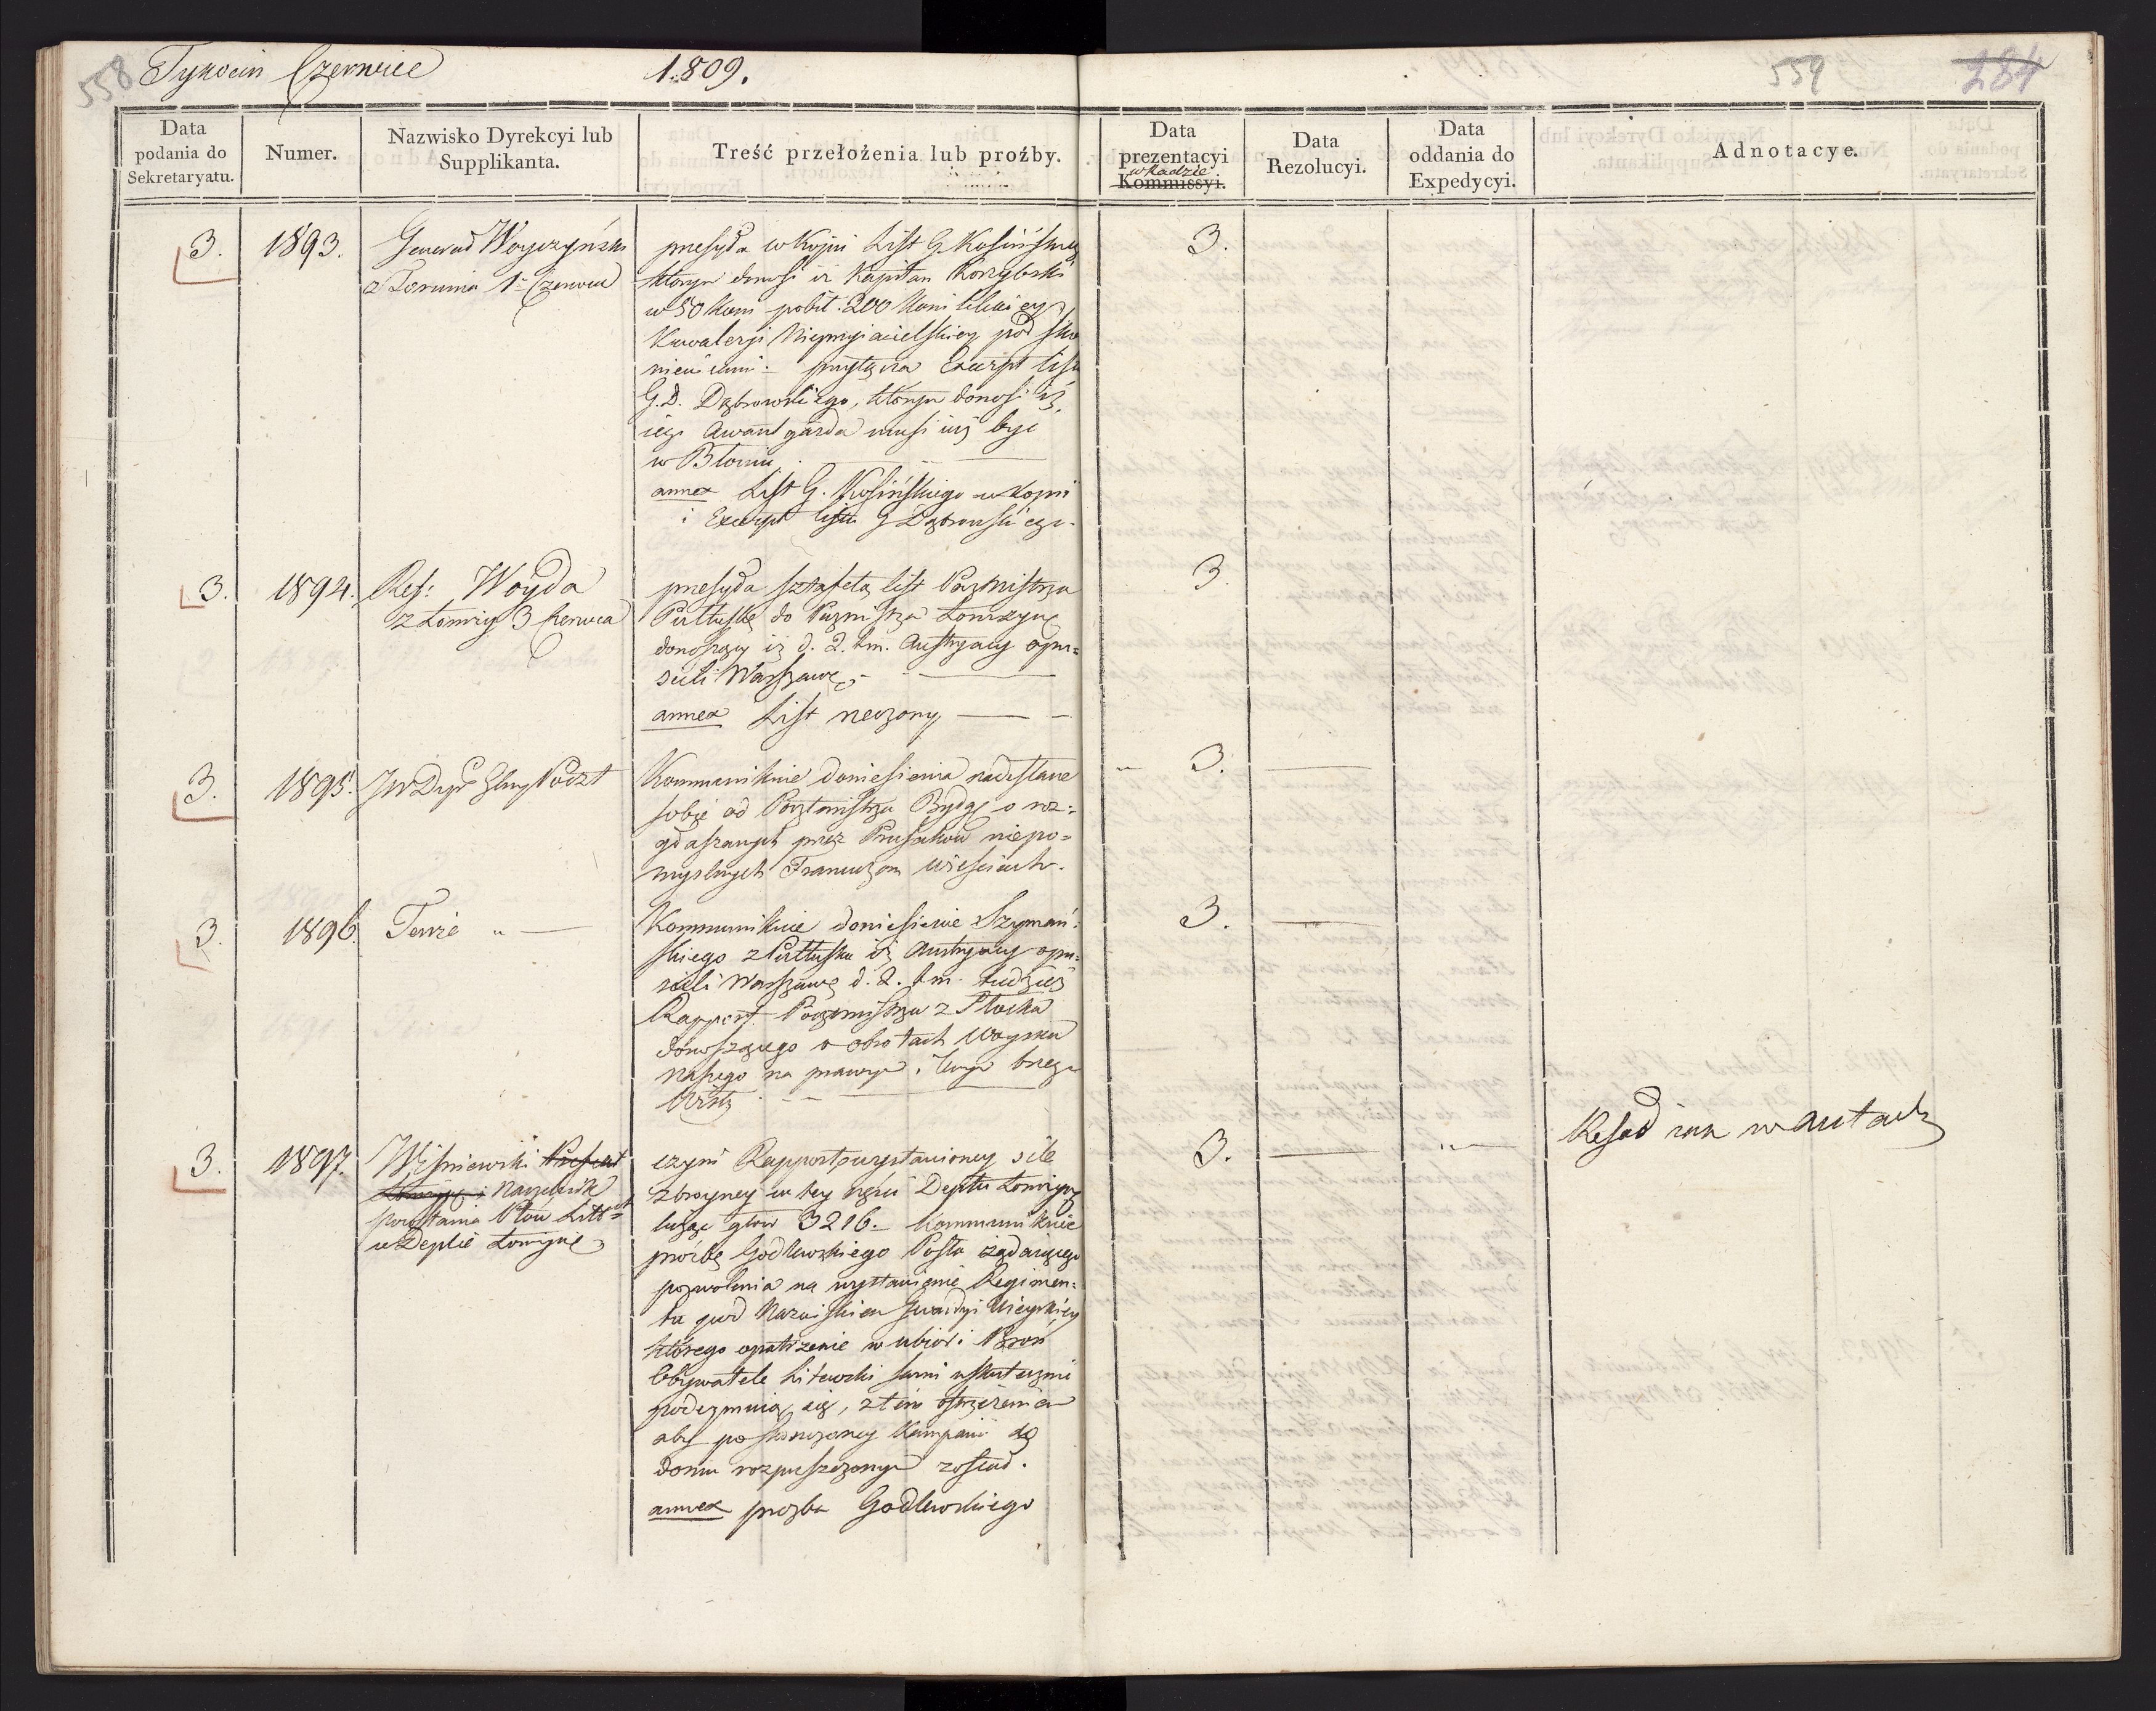 558 Tykocin Czerwiec 1809.
559 284
Data podania do Sekretaryatu.
Numer.
Nazwisko Dyrekcyi lub Supplikanta.
Treść przełożenia lub proźby.
Data prezentacyi w Radzie Kommissyi.
Data Rezolucyi.
Data oddania do Expedycyi.
Adnotacye.
3. 1893. Generał Woyczyński
z Torunia 1. Czerwca
przesyła w Kopii List G. Kosińskieg
którym donosi iż Kapitan Korzybski
w 50 koni pobił 200 koni
Kawaleryi Nieprzyiacielskiey pod
przyłącza Excerpt listu
G. D. Dąbrowskiego, którym donosi iż
iego Awant garda musi iuż być
w Błoniu.
annex List G. Kosińskiego w kopii
i Excerpt listu G Dąbrowskiego.
3.
3. 1894. Ref: Woyda
z Łomży 3 Czerwca
przesyła sztafetą list Poczmistrza
Pułtuske do Poczmistrza Łomżyne
donoszący iż d. 2. t.m. Austryacy opu=
ścili Warszawę.
annex List rzeczony
3.
3. 1895. JW Dyr Głny Poczt
Kommunikuie doniesienia nadesłane
sobie od Pocztmistrza Bydg o roz=
głaszanych przez Prusaków niepo=
myślnych Francuzom wieściach.
3.
3. 1896. Tenże
Kommunikuie doniesienie Szymań=
skiego z Pułtuska iż Austryacy opu=
ścili Warszawę d. 2. t.m. tudzież
Rapport Poczmistrza z Płocka
donoszącego o obrotach Woyska
naszego na prawym i lewym brzegu
Wisły
3.
3. 1897. Wiśniewski Prefekt
Łomżyn i Naczelnik
powstania
w Depcie Łomżyńs
czyni Rapport o wystawioney sile
zbroyney w tey części Deptu Łomżyn
licząc głów 3216. Kommunikuie
proźbę Godlewskiego Posła żądaiącego
pozwolenia na wystawienie Regimen=
tu pod Nazwiskiem Gwardyi Mieyskiey
którego opatrzenie w ubiór i Broń
Obywatele Litewski sami uskutecznić
podeymuią się, z tem ostrzeżeniem
aby po skończoney Kampanii do
domu rozpuszczonym został.
annex proźba Godlewskiego
3.
w Aktach